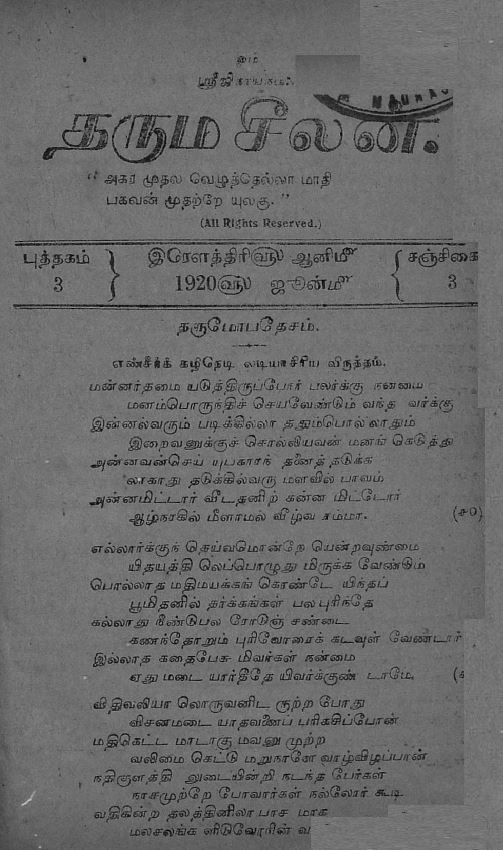 ஸ்ரீஜி
தரும சீலன்.
MADRAS
" அகர முதல வெழுத்தெல்லா மாதி
பகவன் முதற்றே யுலகு. "
(All Rights Reserved.)
புத்தகம் 3
இரௌத்திரி௵ ஆனி௴
1920௵ ஜூன்௴
சஞ்சிகை 3
தருமோபதேசம்.
எண்சீர்க் கழிநெடி லடியாசிரிய விருத்தம்.
மன்னர்தமை யடுத்திருப்போர் பலர்க்கு நன்மை
மனம்பொருந்திச் செயவேண்டும் வந்த வர்க்கு
இன்னல்வரும் படிக்கில்லா ததும்பொல் லாதும்
இறைவனுக்குச் சொல்லியவன் மனங் கெடுத்து
அன்னவன்செய் யுபகாரந் தனைத் தடுக்க
லாகாது தடுக்கில்வரு மளவில் பாவம்
அன்னமிட்டார் வீடதனிற் கன்ன மிட்டோர்
ஆழ்நரகில் மீளாமல் வீழ்வ ரம்மா. (௪௦)
எல்லார்க்குந் தெய்வமொன்றே யென்றவுண்மை
யிதயத்தி லெப்பொழுது மிருக்க வேண்டும்
பொல்லாத மதிமயக்கங் கொண்டே யிந்தப்
பூமிதனில் தர்க்கங்கள் பலபுரிந்தே
கல்லாது நீண்டுபல ரோடுஞ் சண்டை
கணந்தோறும் புரிவோரைக் கடவுள் வேண்டார்
இல்லாத கதைபேசு மிவர்கள் நன்மை
ஏது மடை யார்தீதே யிவர்க்குண் டாமே. (௪
விதிவலியா லொருவனிட ருற்ற போது
விசனமடை யாதவனைப் பரிகசிப்போன்
மதிகெட்ட மாடாகு மவனு முற்ற
வலிமை கெட்டு மறுநாளே வாழ்விழப்பான்
நதிகுளத்தி அடையின்றி நடந்த பேர்கள்
நாசமுற்றே போவார்கள் நல்லோர் கூடி
வதிகின்ற தலத்தினிலா பாச மாக
மலசலங்க ளிடுவோரின் வ